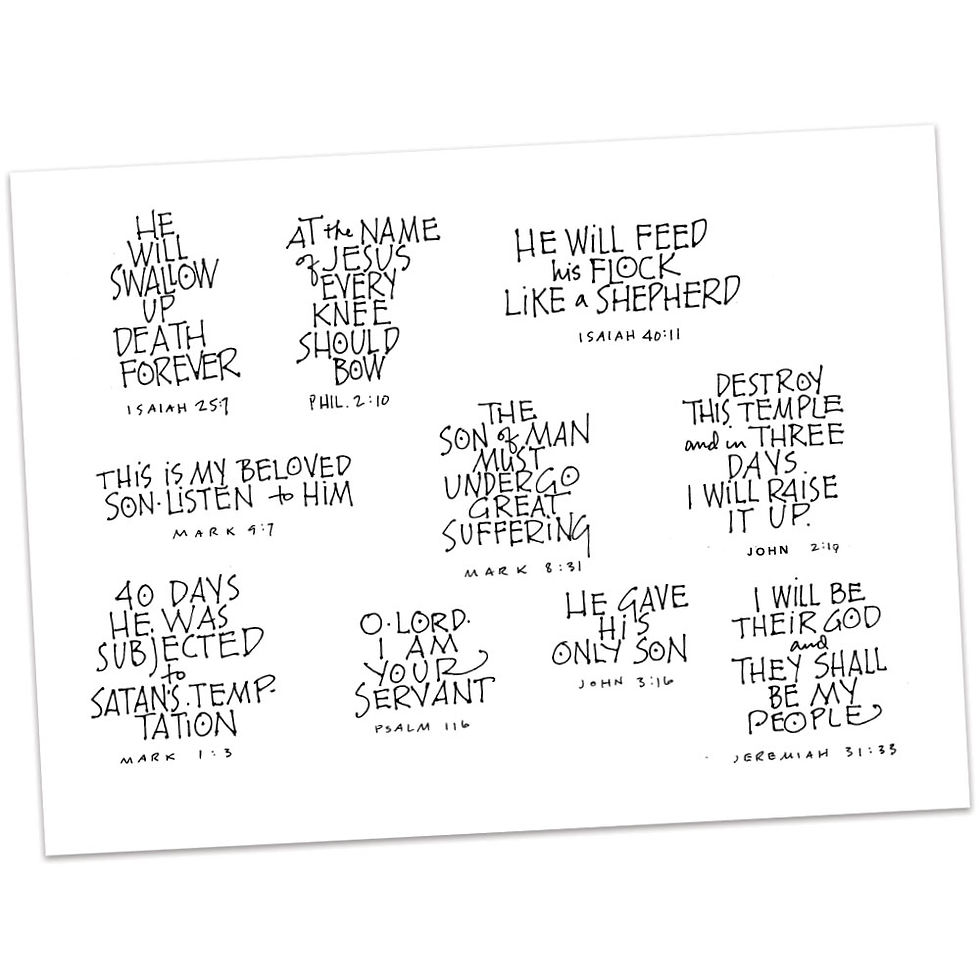 HE
WILL
SWALLOW
UP
DEATH
FOREVER
ISAIAH 25:7
AT the NAME
of JESUS
EVERY
KNEE
SHOULD
BOW
PHIL. 2:10
HE WILL FEED
his FLOCK
LIKE a SHEPHERD
ISAIAH 40:11
THIS IS MY BELOVED
SON·LISTEN to HIM
MARK 9:7
THE
SON of MAN
MUST
UNDERGO
GREAT
SUFFERING
MARK 8:31
DESTROY
THIS TEMPLE
and in THREE
DAYS.
I WILL RAISE
IT UP.
JOHN 2:19
40 DAYS
HE WAS
SUBJECTED
to
SATAN'S TEMP-
TATION
MARK 1:3
O·LORD·
I AM
YOUR
SERVANT
PSALM 116
HE GAVE
HIS
ONLY SON
JOHN 3:16
I WILL BE
THEIR GOD
and
THEY SHALL
BE MY
PEOPLE
JEREMIAH 31:33